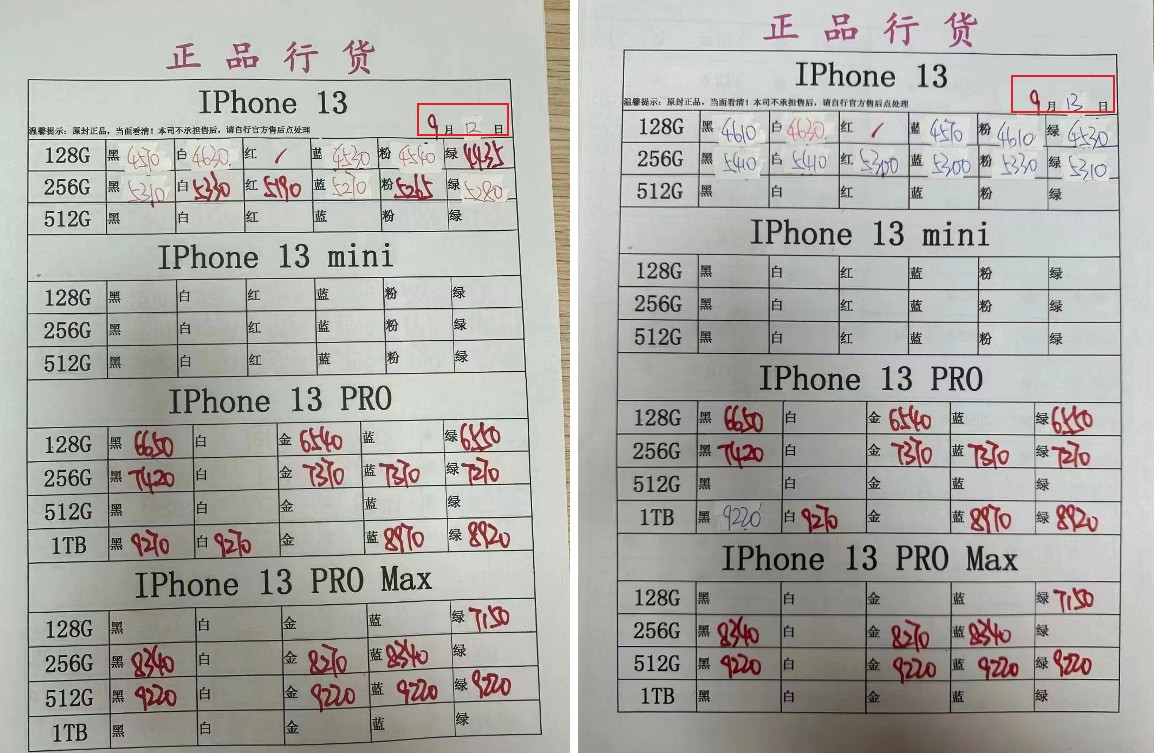 正品行货
IPhone 13
温馨提示：原封正品，当面看清！本司不承担售后，请自行官方售后点处理
9月12日
128G 黑 4570 白 4630 红 / 蓝 4530 粉 4540 绿 4435
256G 黑 5310 白 5330 红 5190 蓝 5270 粉 5265 绿 5280
512G 黑 白 红 蓝 粉 绿
IPhone 13 mini
128G 黑 白 红 蓝 粉 绿
256G 黑 白 红 蓝 粉 绿
512G 黑 白 红 蓝 粉 绿
IPhone 13 PRO
128G 黑 6650 白 金 6540 蓝 绿 6550
256G 黑 7420 白 金 7370 蓝 7370 绿 7270
512G 黑 白 金 蓝 绿
1TB 黑 9270 白 9270 金 蓝 8970 绿 8920
IPhone 13 PRO Max
128G 黑 白 金 蓝 绿 7150
256G 黑 8340 白 金 8270 蓝 8340 绿
512G 黑 9220 白 金 9220 蓝 9220 绿 9220
1TB 黑 白 金 蓝 绿
正品行货
IPhone 13
温馨提示：原封正品，当面看清！本司不承担售后，请自行官方售后点处理
9月13日
128G 黑 4610 白 4630 红 / 蓝 4570 粉 4610 绿 4530
256G 黑 5410 白 5410 红 5300 蓝 5300 粉 5330 绿 5310
512G 黑 白 红 蓝 粉 绿
IPhone 13 mini
128G 黑 白 红 蓝 粉 绿
256G 黑 白 红 蓝 粉 绿
512G 黑 白 红 蓝 粉 绿
IPhone 13 PRO
128G 黑 6650 白 金 6540 蓝 绿 6550
256G 黑 7420 白 金 7370 蓝 7370 绿 7270
512G 黑 白 金 蓝 绿
1TB 黑 9220 白 9270 金 蓝 8970 绿 8920
IPhone 13 PRO Max
128G 黑 白 金 蓝 绿 7150
256G 黑 8340 白 金 8270 蓝 8340 绿
512G 黑 9220 白 金 9220 蓝 9220 绿 9220
1TB 黑 白 金 蓝 绿